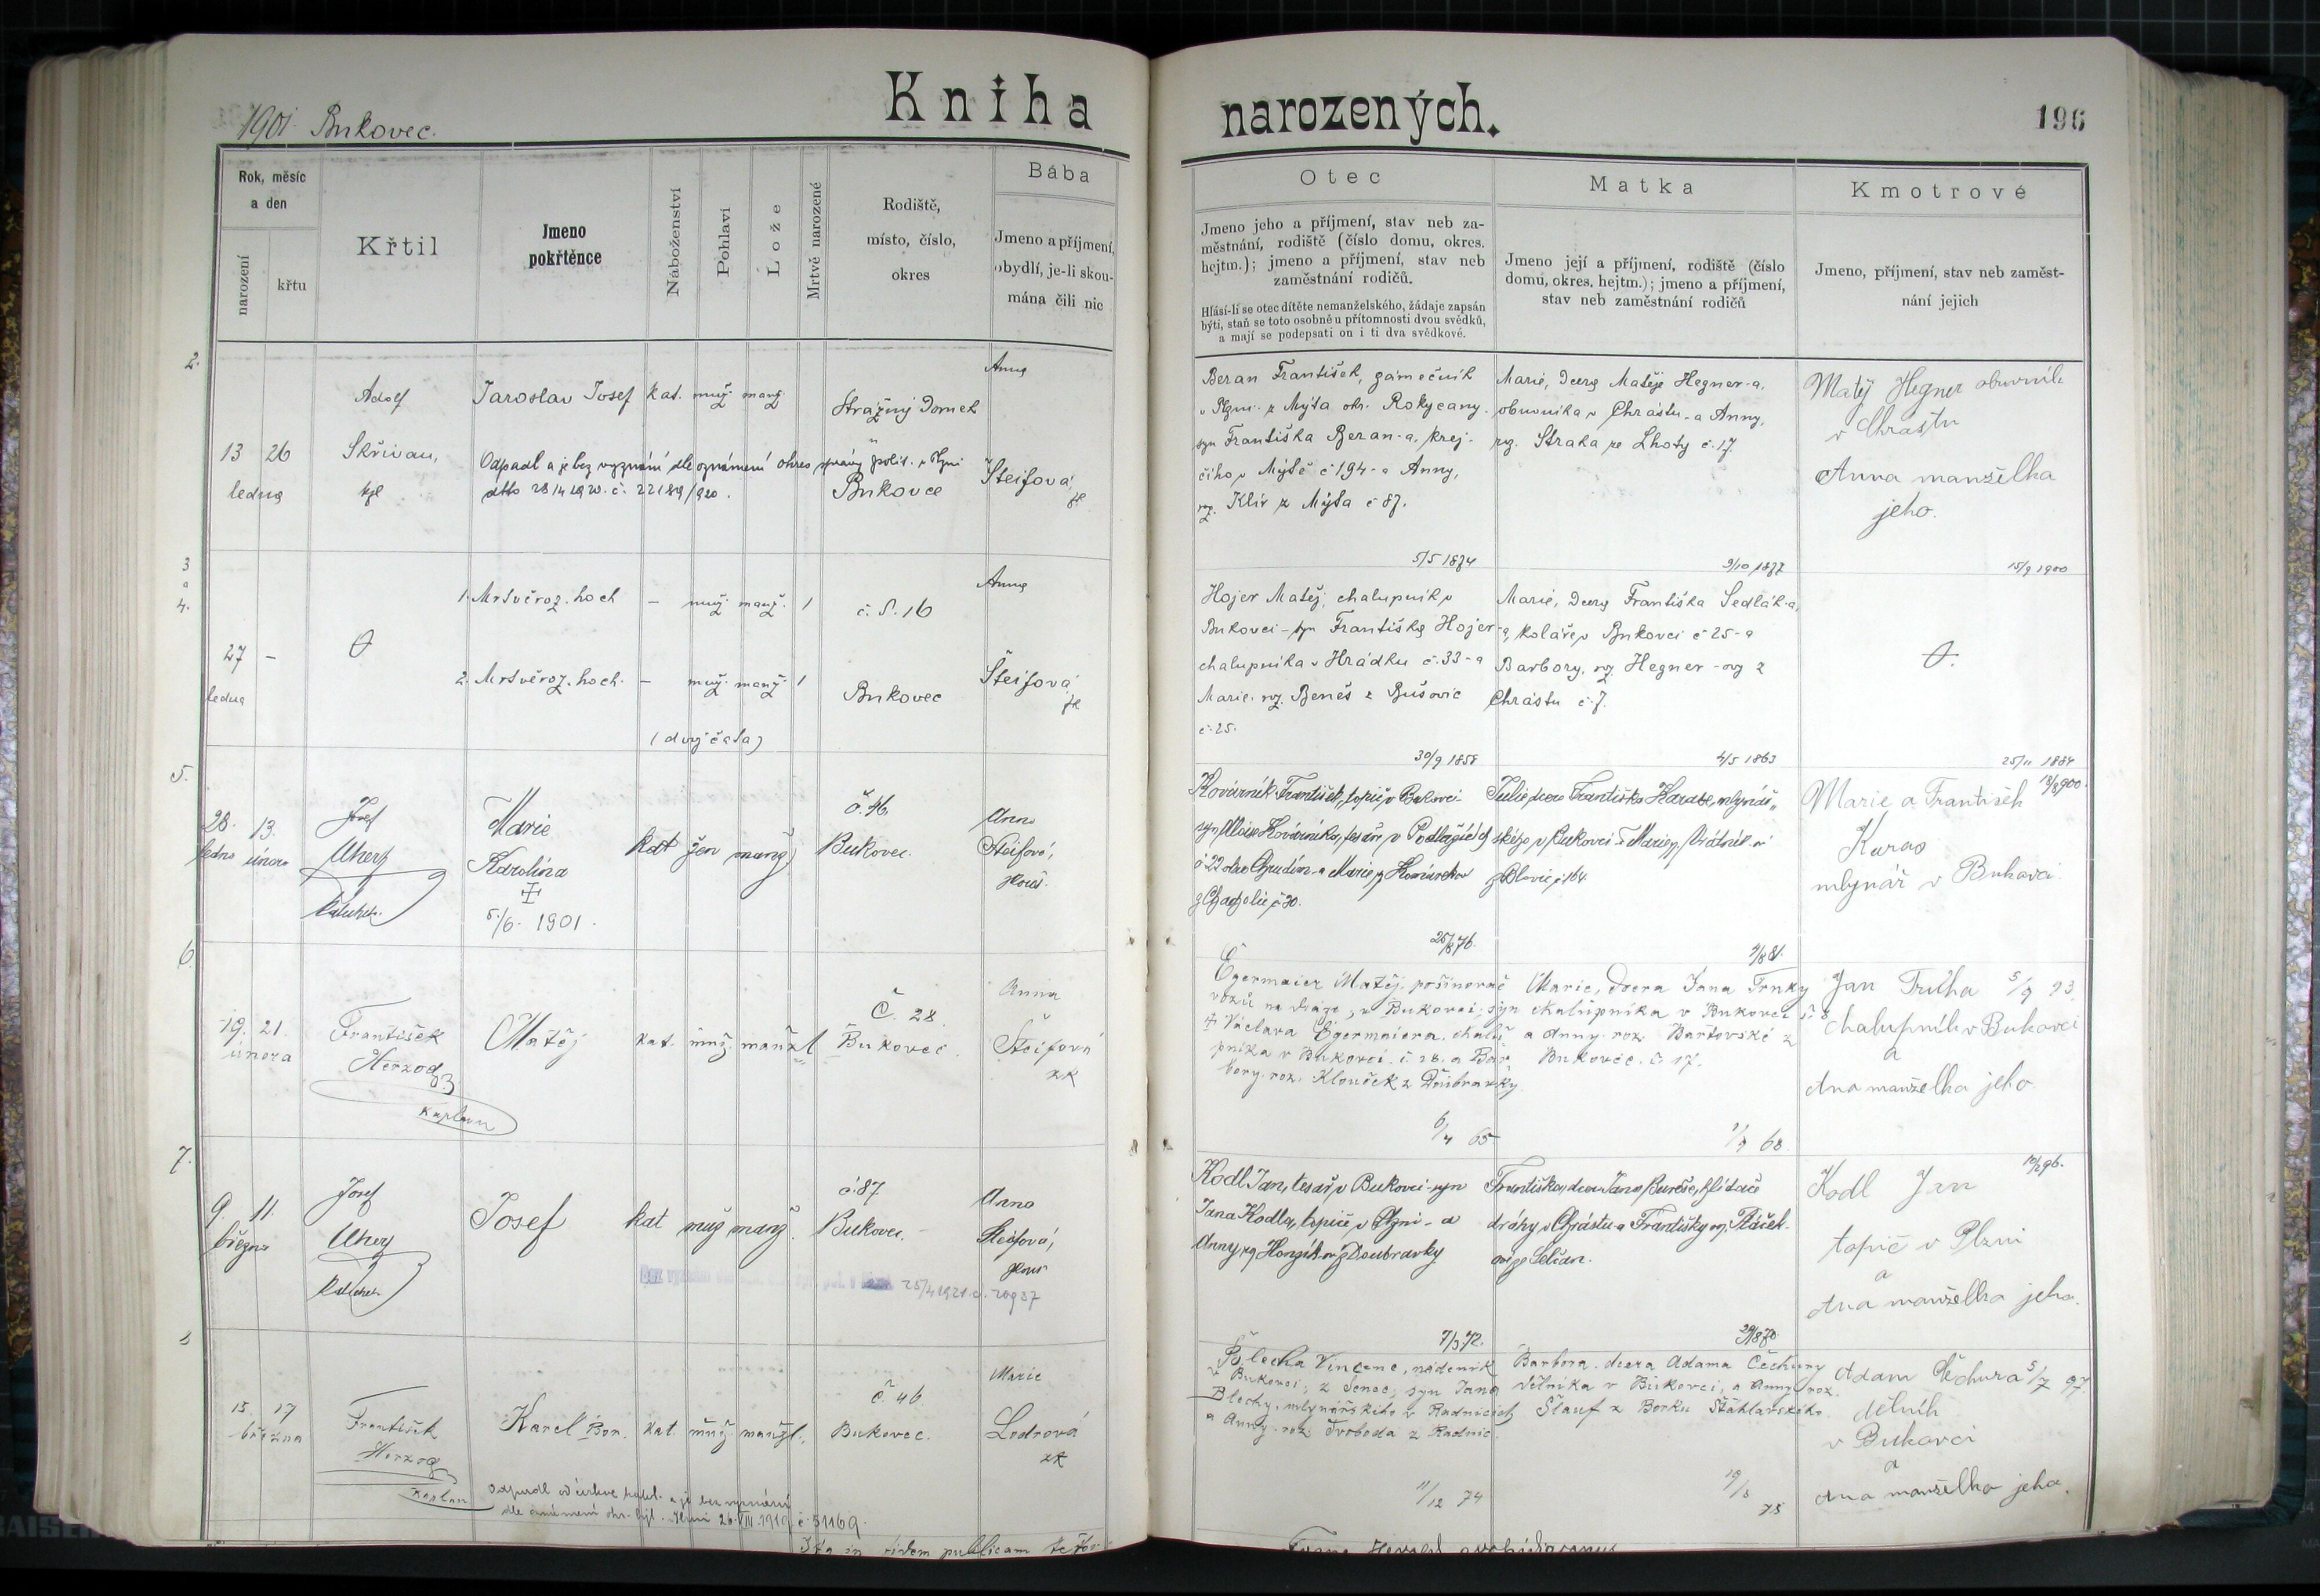 1901. Bukovec.
Kniha
narozených.
196
Rok, měsíc
a den
narození
křtu
Křtil
Jmeno
pokřtěnce
Náboženství
Pohlaví
Lože
Mrtvě narozené
Rodiště,
místo, číslo,
okres
Bába
Jmeno a příjmení,
obydlí, je-li skou-
mána čili nic
Otec
Jmeno jeho a příjmení, stav neb za-
městnání, rodiště (číslo domu, okres.
hejtm.); jmeno a příjmení, stav neb
zaměstnání rodičů.
Hlásí-li se otec dítěte nemanželského, žádaje zapsán
býti, staň se toto osobně u přítomnosti dvou svědků,
a mají se podepsati on i ti dva svědkové.
Matka
Jmeno její a příjmení, rodiště (číslo
domu, okres. hejtm.); jmeno a příjmení,
stav neb zaměstnání rodičů
Kmotrové
Jmeno, příjmení, stav neb zaměst-
nání jejich
2.
13 26
ledna
Adolf
Skřivan,
Jaroslav Josef kat. muž. manž.
Odpadl a je bez vyznání dle oznámení okres. správy polit. v Plzni
dtto 28/4 1920. č. 22189/920.
Strážný Domek
Bukovec
Anna
Šteifová,
Beran František, zámečník
v Plzni z Mýta okr. Rokycany.
syn František Beran-a, krej-
čího v Mýtě č 194 - a Anny,
roz. Klír z Mýta č 87.
5/5 1874
Marie, dcera Matěje Hegner-a,
obuvníka v Chrástu - a Anny,
roz. Straka ze Lhoty č. 17.
9/10 1877
Matěj Hegner obuvník
v Chrástu
Anna manželka
jeho.
15/9 1900
3
a
4.
27 -
ledna
1. Mrtvěroz. hoch - muž. manž. 1
2. Mrtvěroz. hoch. - muž. manž. 1
(dvojčata)
č. d. 16
Bukovec
Anna
Šteifová
Hojer Matěj, chalupník v
Bukovci - syn Františka Hojer-a,
chalupníka v Hrádku č. 33 - a
Marie, roz. Beneš z Bušovic
č. 25.
30/9 1858
Marie, dcera Františka Sedlák-a,
koláře v Bukovci č 25 - a
Barbory, roz. Hegner-ov z
Chrástu č. 7.
4/5 1863
25/11 1884
5.
28. 13.
ledna února
Josef
Uherz
Marie
Karolina
5./6. 1901.
kat žen manž
č. 46
Bukovec.
Anna
Šteifová,
Kovárník František, topič v Bukovci -
syn Aloise Kovárníka, tesaře v Podlažicích
č 22 okr. Chrudim - a Marie,
č 30.
25/8 76.
Julie, dcera Františka Karase, mlynář-
ského v Bukovci a Marie,
z Blovic č 164.
18/8 900.
Marie a František
Karas
mlynář v Bukovci.
6.
19. 21.
února
František
Herzog
kaplan
Matěj kat. muž. manžl
Č. 28
Bukovec.
Anna
Šteifová
zk
Egermaier Matěj, pošinovač
vozů na dráze, v Bukovci, syn
† Václava Egermaiera, chalu-
pníka v Bukovci č. 28. a Bar-
bory. roz. Klouček z Doubravky.
6/4 65
Marie, dcera Jana Trnky
chalupníka v Bukovci č. 8
a Anny. roz. Bartovské z
Bukovec. č 17.
1/9 68
Jan Trůha 5/9 93.
chalupník v Bukovci
a
Ana manželka jeho
7.
9. 11.
března
Josef
Uherz
Josef kat muž manž.
č. 87
Bukovec.
Anna
Šteifová,
25/4 1921. č. 20937
Kodl Jan, tesař v Bukovci - syn
Jana Kodla, topiče v Plzni - a
Anny, roz. Honzík-ov. z Doubravky
7/3 72.
Františka, dcera Jana Bureše, hlídače
dráhy v Chrástu a Františky roz. Ptáček-
10/2 96.
Kodl Jan
topič v Plzni
a
Ana manželka jeho.
8
15. 17
března
František
Herzog
kaplan
Karel Bor. kat. muž. manžl.
Odpadl od církve katol. a je bez vyznání
dle oznámení okr. hejt. Plzni 26.VIII.1919 č. 51169.
č. 46
Bukovec.
Marie
Lodrová
zk
Blecha Vincenc, nádeník
v Bukovci, z Senec, syn Jana
Blechy, mlynářského v Radnicích
a Anny. roz. Svoboda z Radnic.
11/12 74
Barbora. dcera Adama Čechury
dělníka v Bukovci, a Anny roz.
Šlauf z Borku Šťáhlavského.
19/8 75
Adam Čechura 5/7 97.
dělník
v Bukovci
a
Ana manželka jeho.
Ita in fidem publicam testor